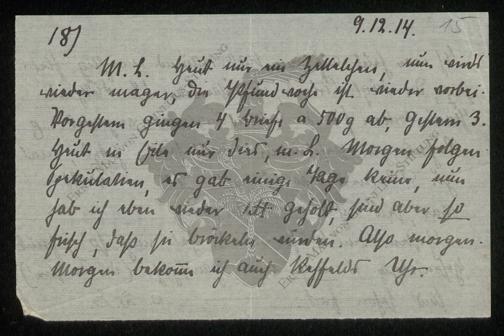 18) 9.12.14. 15
M. L. Heut nur ein Zettelchen, nun wirds
wieder mager, die Pfundwoche ist wieder vorbei.
Vorgestern gingen 4 Briefe a 500g ab, gestern 3.
Heut in Eile nur dies, m. L. Morgen folgen
Spekulatien, es gab einige Tage keine, nun
hab ich eben wieder 1 ℔ geholt sind aber so
frisch, daß sie bröckeln würden. Also morgen.
Morgen bekomme ich auch Uhr.